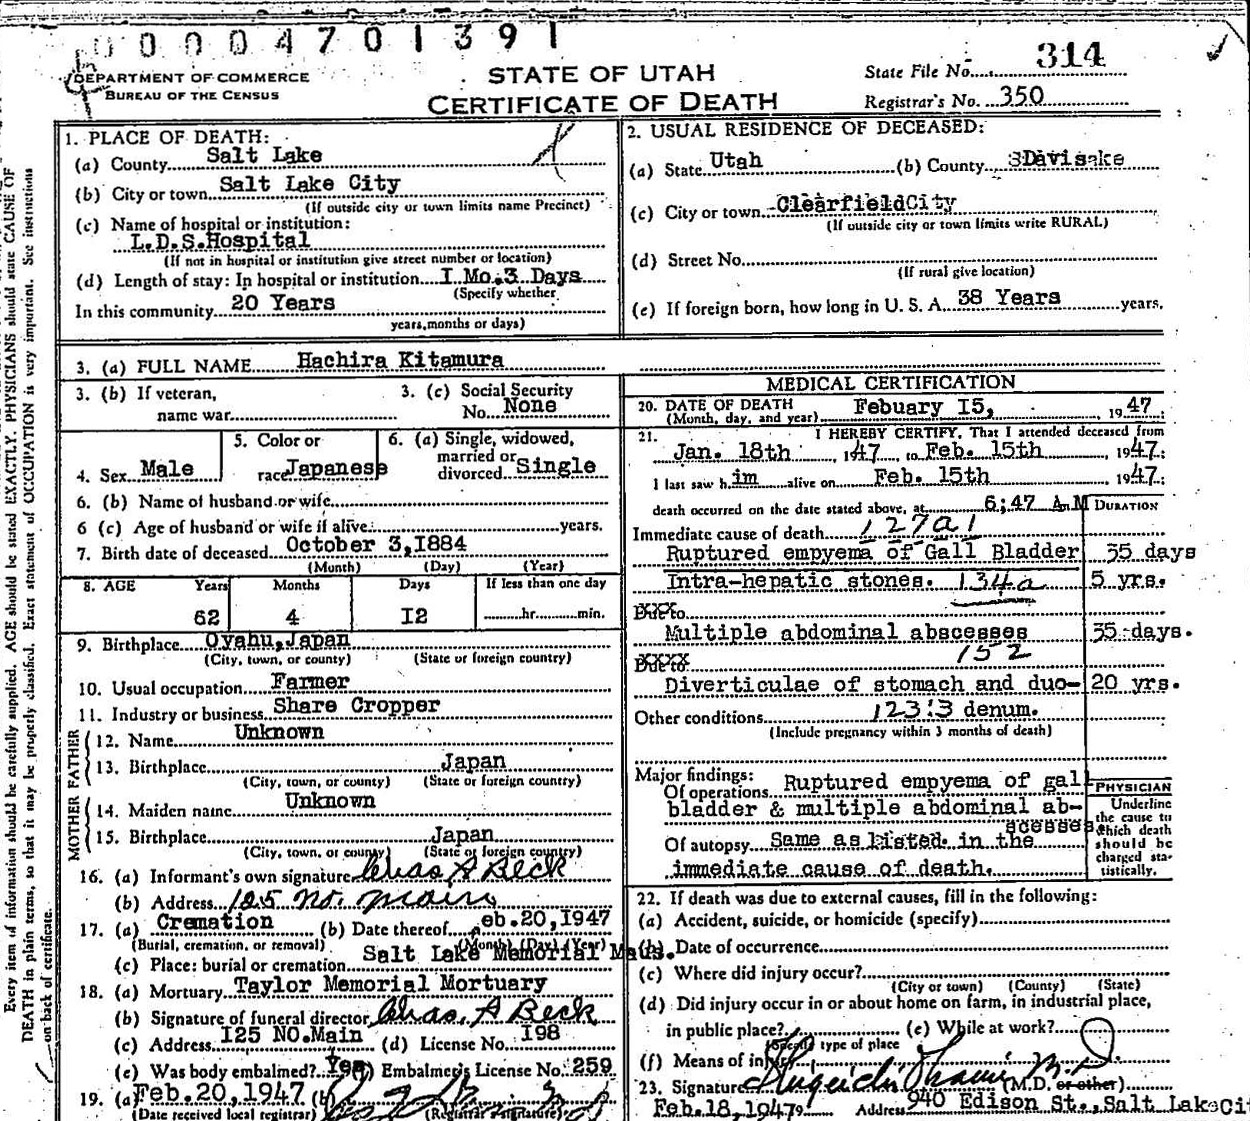 00004701391
DEPARTMENT OF COMMERCE
BUREAU OF THE CENSUS
STATE OF UTAH
CERTIFICATE OF DEATH
State File No. 314
Registrar's No. 350
Every item of information should be carefully supplied. AGE should be stated EXACTLY. PHYSICIANS should state CAUSE OF
DEATH in plain terms, so that it may be properly classified. Exact statement of OCCUPATION is very important. See instructions
on back of certificate.
1. PLACE OF DEATH:
(a) County Salt Lake
(b) City or town Salt Lake City
(If outside city or town limits name Precinct)
(c) Name of hospital or institution:
L.D.S.Hospital
(If not in hospital or institution give street number or location)
(d) Length of stay: In hospital or institution I Mo.3 Days
(Specify whether
In this community 20 Years
years, months or days)
2. USUAL RESIDENCE OF DECEASED:
(a) State Utah (b) County Davis
(c) City or town Clearfield City
(If outside city or town limits write RURAL)
(d) Street No.
(If rural give location)
(e) If foreign born, how long in U. S. A. 38 Years years.
3. (a) FULL NAME Hachira Kitamura
3. (b) If veteran,
name war
3. (c) Social Security
No. None
4. Sex Male
5. Color or
race Japanese
6. (a) Single, widowed,
married or
divorced Single
6. (b) Name of husband or wife
6 (c) Age of husband or wife if alive years.
7. Birth date of deceased October 3,1884
(Month) (Day) (Year)
8. AGE Years Months Days If less than one day
62 4 I2 hr. min.
9. Birthplace Oyahu,Japan
(City, town, or county) (State or foreign country)
10. Usual occupation Farmer
11. Industry or business Share Cropper
FATHER
12. Name Unknown
13. Birthplace Japan
(City, town, or county) (State or foreign country)
MOTHER
14. Maiden name Unknown
15. Birthplace Japan
(City, town, or county) (State or foreign country)
16. (a) Informant's own signature Chas A Beck
(b) Address 125 No. Main
17. (a) Cremation (b) Date thereof eb.20,1947
(Burial, cremation, or removal) (Month) (Day) (Year)
(c) Place: burial or cremation Salt Lake Memorial Maus.
18. (a) Mortuary Taylor Memorial Mortuary
(b) Signature of funeral director Chas. A Beck
(c) Address I25 NO.Main (d) License No. 198
(e) Was body embalmed? Yes (f) Embalmer's License No. 259
19. (a) Feb.20,1947 (b)
(Date received local registrar) (Registrar's signature)
MEDICAL CERTIFICATION
20. DATE OF DEATH
(Month, day, and year) Febuary I5, 1947
21. I HEREBY CERTIFY, That I attended deceased from
Jan. 18th, 1947, to Feb. 15th, 1947;
I last saw him alive on Feb. 15th 1947;
death occurred on the date stated above, at 6:47 A.M DURATION
Immediate cause of death 127a1
Ruptured empyema of Gall Bladder 35 days
Intra-hepatic stones. 134a 5 yrs.
Due to
Multiple abdominal abscesses 35 days.
152
Due to
Diverticulae of stomach and duo- 20 yrs.
Other conditions 123:3 denum.
(Include pregnancy within 3 months of death)
Major findings:
Of operations Ruptured empyema of gall
bladder & multiple abdominal ab-
scesses
Of autopsy Same as listed in the
immediate cause of death.
PHYSICIAN
Underline
the cause to
which death
should be
charged sta-
tistically.
22. If death was due to external causes, fill in the following:
(a) Accident, suicide, or homicide (specify)
(b) Date of occurrence
(c) Where did injury occur?
(City or town) (County) (State)
(d) Did injury occur in or about home on farm, in industrial place,
in public place? (e) While at work?
(Specify type of place
(f) Means of injury
23. Signature M.D. (M.D. or other)
Feb.18,1947 Address 940 Edison St.,Salt Lake Ci